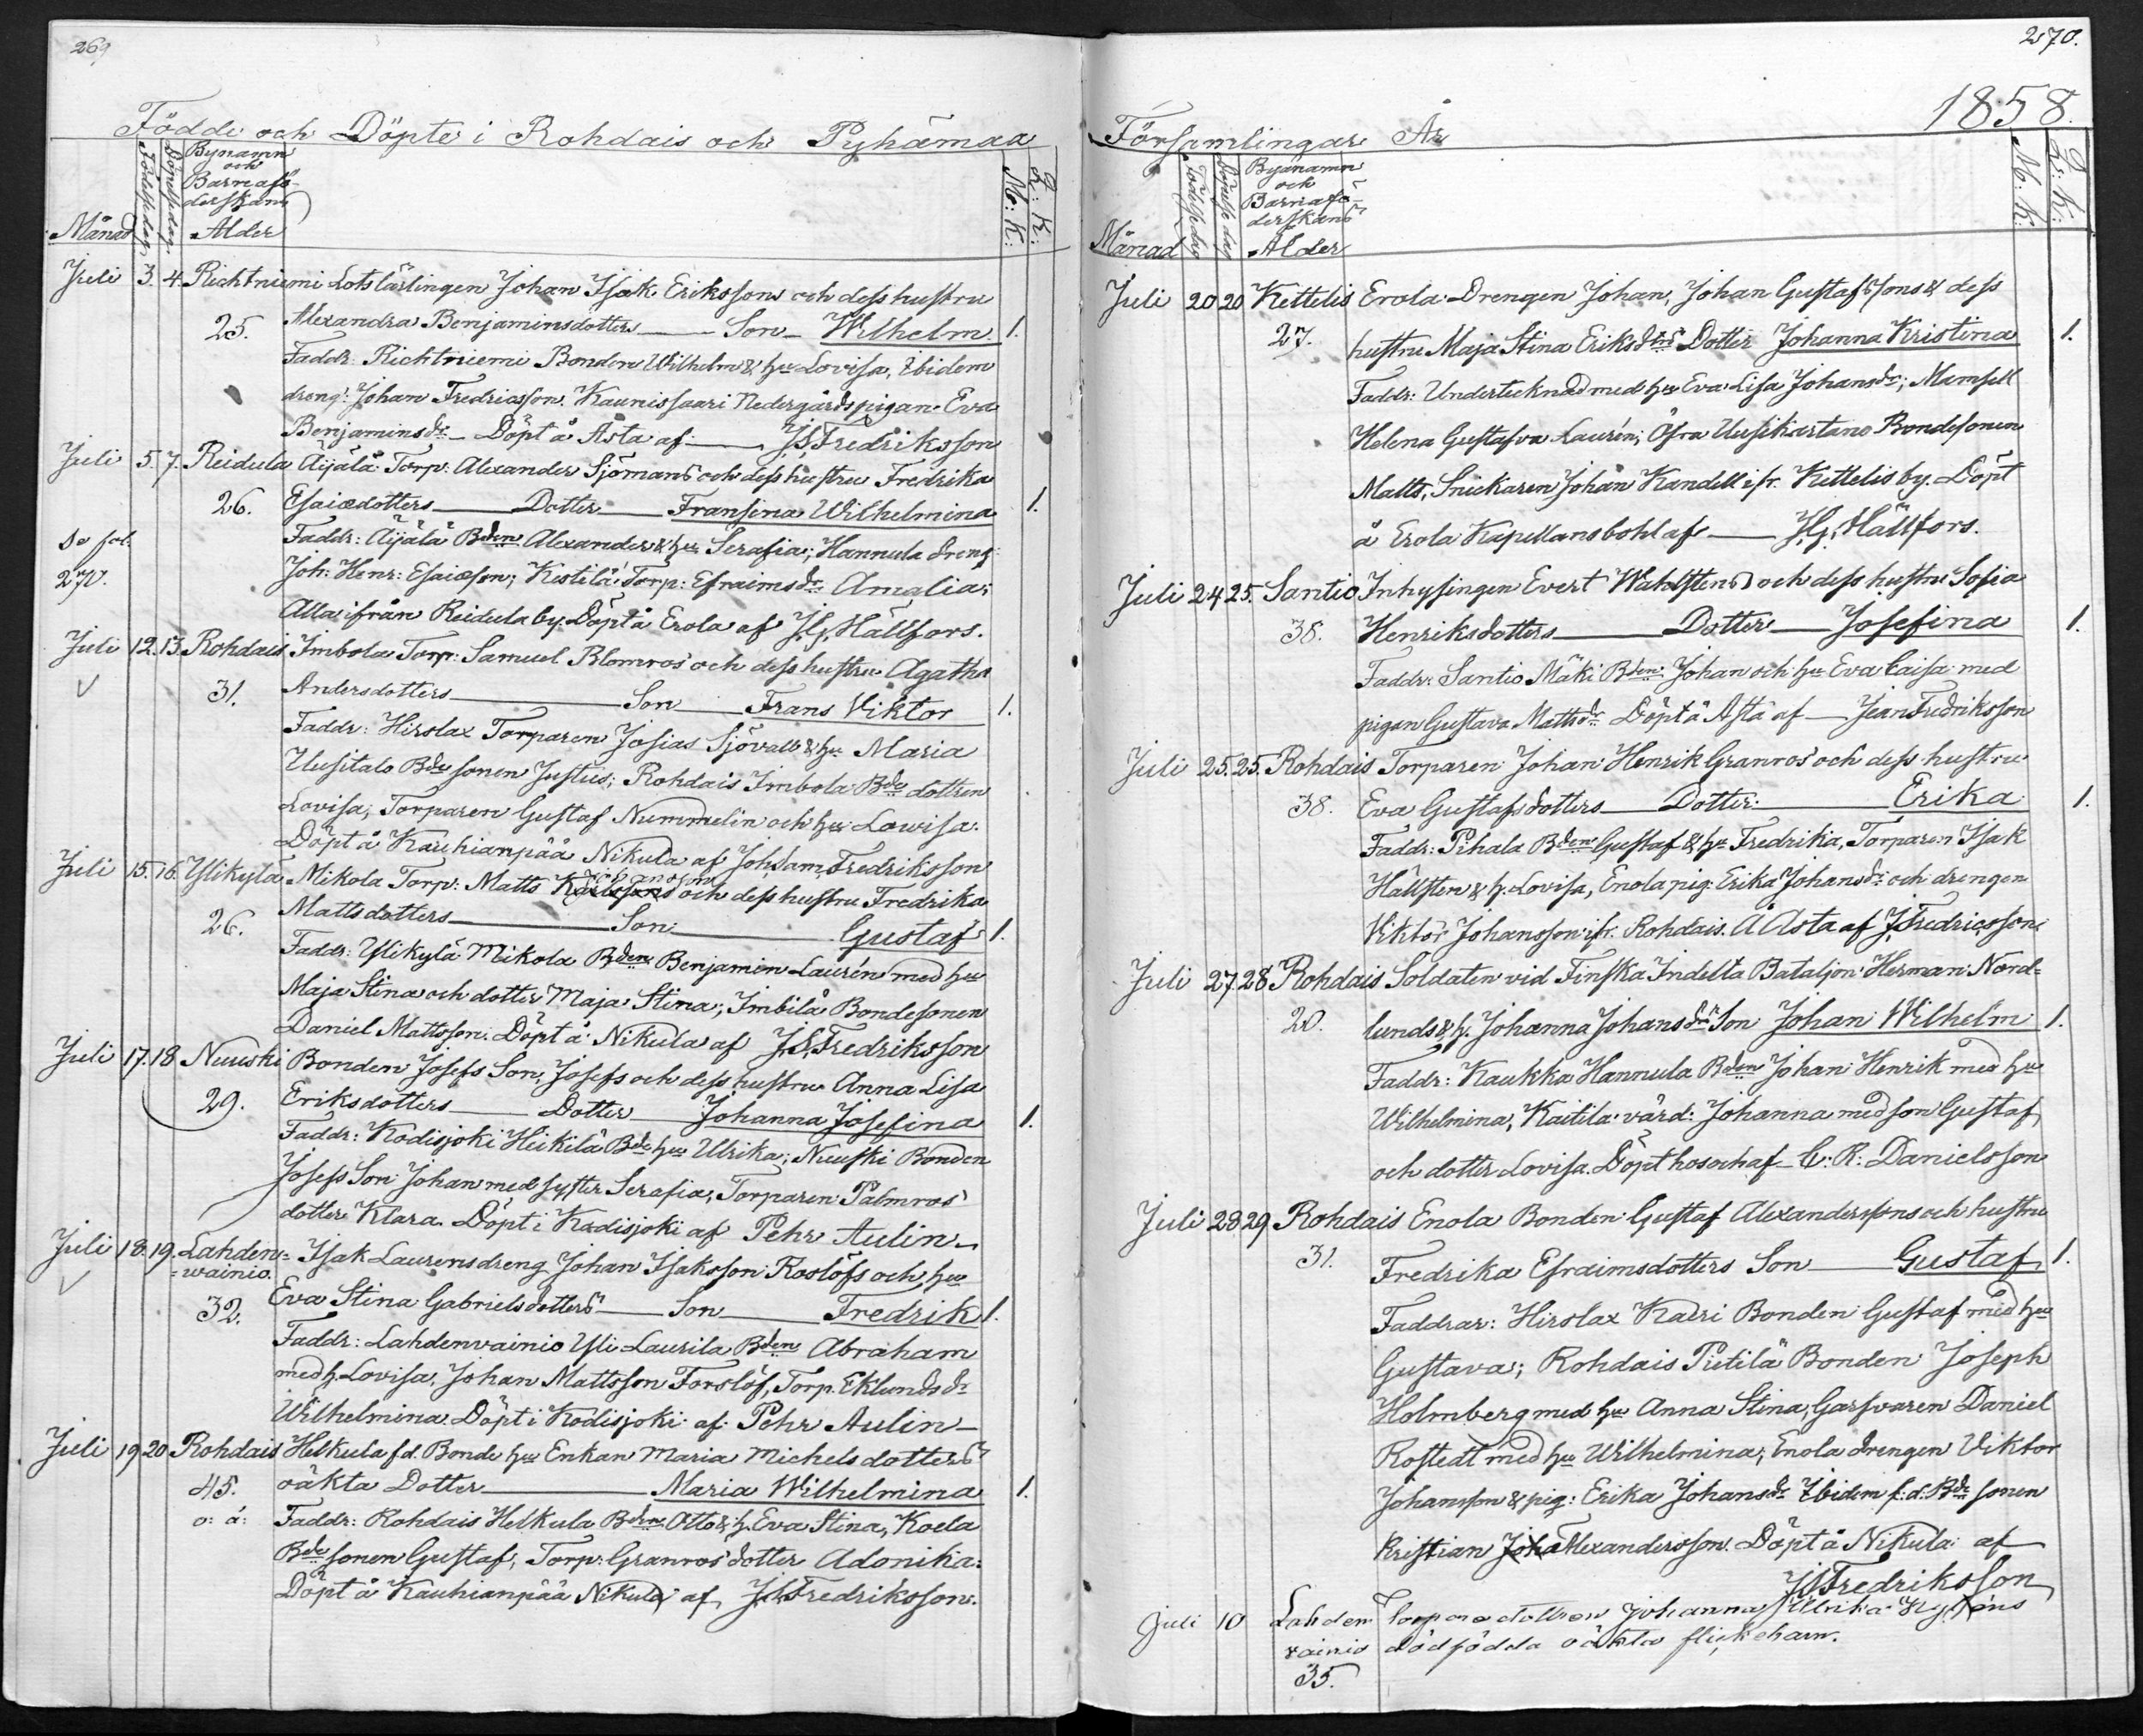 269
Födde och Döpte i Rohdais och Pyhämaa
Månad
Födelsedag
Döpelsedag
Bynamn
och
Barnafö-
derskans
Ålder
M: K:
Q: K:
Juli 3. 4. Richtniemi Lotslärlingen Johan Isak Erikssons och dess hustru
25. Alexandra Benjaminsdotters Son Wilhelm 1.
Faddr: Richtniemi Bonden Wilhelm & hu Lovisa, Ibidem
dreng: Johan Fredricsson. Kaunissaari Nedergårds pigan Eva
Benjaminsdr Döpt å Asta af J.S. Fredriksson
Juli 5. 7. Reidula Äijälä Torp: Alexander Sjömans och dess hustru Fredrika
26. Esaiædotters Dotter Fransina Wilhelmina 1.
Se fol: Faddr: Äijälä Bden Alexander & hu Serafia; Hannula dreng:
270. Joh: Henr: Esaiæson; Kestilä Torp: Efraimsdr Amalia;
Alla ifrån Reidula by. Döpt å Erola af J.G. Hällfors.
Juli 12. 13. Rohdais Imbola Torp: Samuel Blomros' och dess hustru Agatha
√ 31. Andersdotters Son Frans Viktor 1.
Faddr: Hirslax Torparen Josias Sjövall & hu Maria
Uusitalo Bde sonen Justus; Rohdais Imbola Bde dottren
Lovisa; Torparen Gustaf Nummelin och hu Lowisa.
Döpt å Kauhianpää Nikula af Joh. Sam. Fredriksson
Juli 15. 16. Ylikylä Mikola Torp: Matts Karlssons Johanssons och dess hustru Fredrika
26. Mattsdotters Son Gustaf 1.
Faddr: Ylikylä Mikola Bden Benjamin Laurén med hu
Maja Stina och dotter Maja Stina; Imbilä Bondesonen
Daniel Mattsson. Döpt å Nikula af J.S. Fredriksson
Juli 17. 18 Nuuski Bonden Josefs Son, Josefs och dess hustru Anna Lisa
29. Eriksdotters Dotter Johanna Josefina 1.
Faddr: Kodisjoki Heikilä Bde hu Ulrika; Nuuski Bonden
Josefs Son Johan med syster Serafia, Torparen Palmros'
dotter Klara. Döpt i Kodisjoki af Pehr Aulin
Juli 18. 19. Lahden= Isak Laurens dreng Johan Isaksson Roslöfs och hu
=wainio.
√ 32. Eva Stina Gabrielsdotters Son Fredrik 1.
Faddr: Lahdenvainio Yli Laurila Bden Abraham
med h. Lovisa, Johan Mattsson Forslöf, Torp. Eklunds dr
Wilhelmina. Döpt i Kodisjoki af Pehr Aulin
Juli 19 20 Rohdais Helkula f.d. Bonde hu Enkan Maria Michelsdotters
45. oäkta Dotter Maria Wilhelmina 1.
o: ä: Faddr: Rohdais Helkula Bden Otto & h. Eva Stina, Koela
Bde sonen Gustaf, Torp: Granros' dotter Adonika:
Döpt å Kauhianpää Nikula af J.S. Fredriksson.
270.
Församlingar År 1858.
Månad
Födelsedag
Döpelse dag
Byanamn
och
Barnafö-
derskans
Ålder
M: K:
Q: K:
Juli 20 20 Kettelis Erola Drengen Johan, Johan Gustafssons & dess
27. hustru Maja Stina Eriksdrs Dotter Johanna Kristina 1.
Faddr: Undertecknad med hu Eva Lisa Johansdr; Mamsell
Helena Gustafva Laurén; Öfra Uusikartano Bondesonen
Matts, Snickaren Johan Kandell ifr. Kettelis by. Döpt
å Erola Kapellansbohl af J.G. Hällfors.
Juli 24 25. Santio Inhysingen Evert Wahlstens och dess hustru Sofia
38. Henriksdotters Dotter Josefina 1.
Faddr: Santio Mäki Bden Johan och hu Eva Caisa med
pigan Gustava Mattsdr Döpt å Asta af Jean Fredriksson
Juli 25. 25. Rohdais Torparen Johan Henrik Granros' och dess hustru
38. Eva Gustafsdotters Dotter Erika 1.
Faddr: Pihala Bden Gustaf & hu Fredrika, Torparen Isak
Hällsten & h. Lovisa, Enola pig: Erika Johansdr och drengen
Viktor Johansson ifr. Rohdais. Å Asta af J. Fredricsson.
Juli 27. 28 Rohdais Soldaten vid Finska Indelta Bataljon Herman Nord=
20. lunds & h. Johanna Johansdrs Son Johan Wilhelm 1.
Faddr: Kaukka Hannula Bden Johan Henrik med hu
Wilhelmina, Kaitila värd: Johanna med son Gustaf,
och dotter Lovisa. Döpt hos och af C: R: Danielsson
Juli 28 29. Rohdais Enola Bonden Gustaf Alexanderssons och hustru
31. Fredrika Efraimsdotters Son Gustaf 1.
Faddrar: Hirslax Kairi Bonden Gustaf med hu
Gustava; Rohdais Pietilä Bonden Joseph
Holmberg med hu Anna Stina, Garfvaren Daniel
Rostedt med hu Wilhelmina, Enola drengen Viktor
Johansson & pig: Erika Johansdr Ibidem f: d: Bde sonen
Kristian Joha Alexandersson. Döpt å Nikula af
J.S. Fredriksson
Juli 10 Lahden Torpare dottren Johanna Ulrika Nyléns
vainio dödfödda oäkta flickebarn.
35.